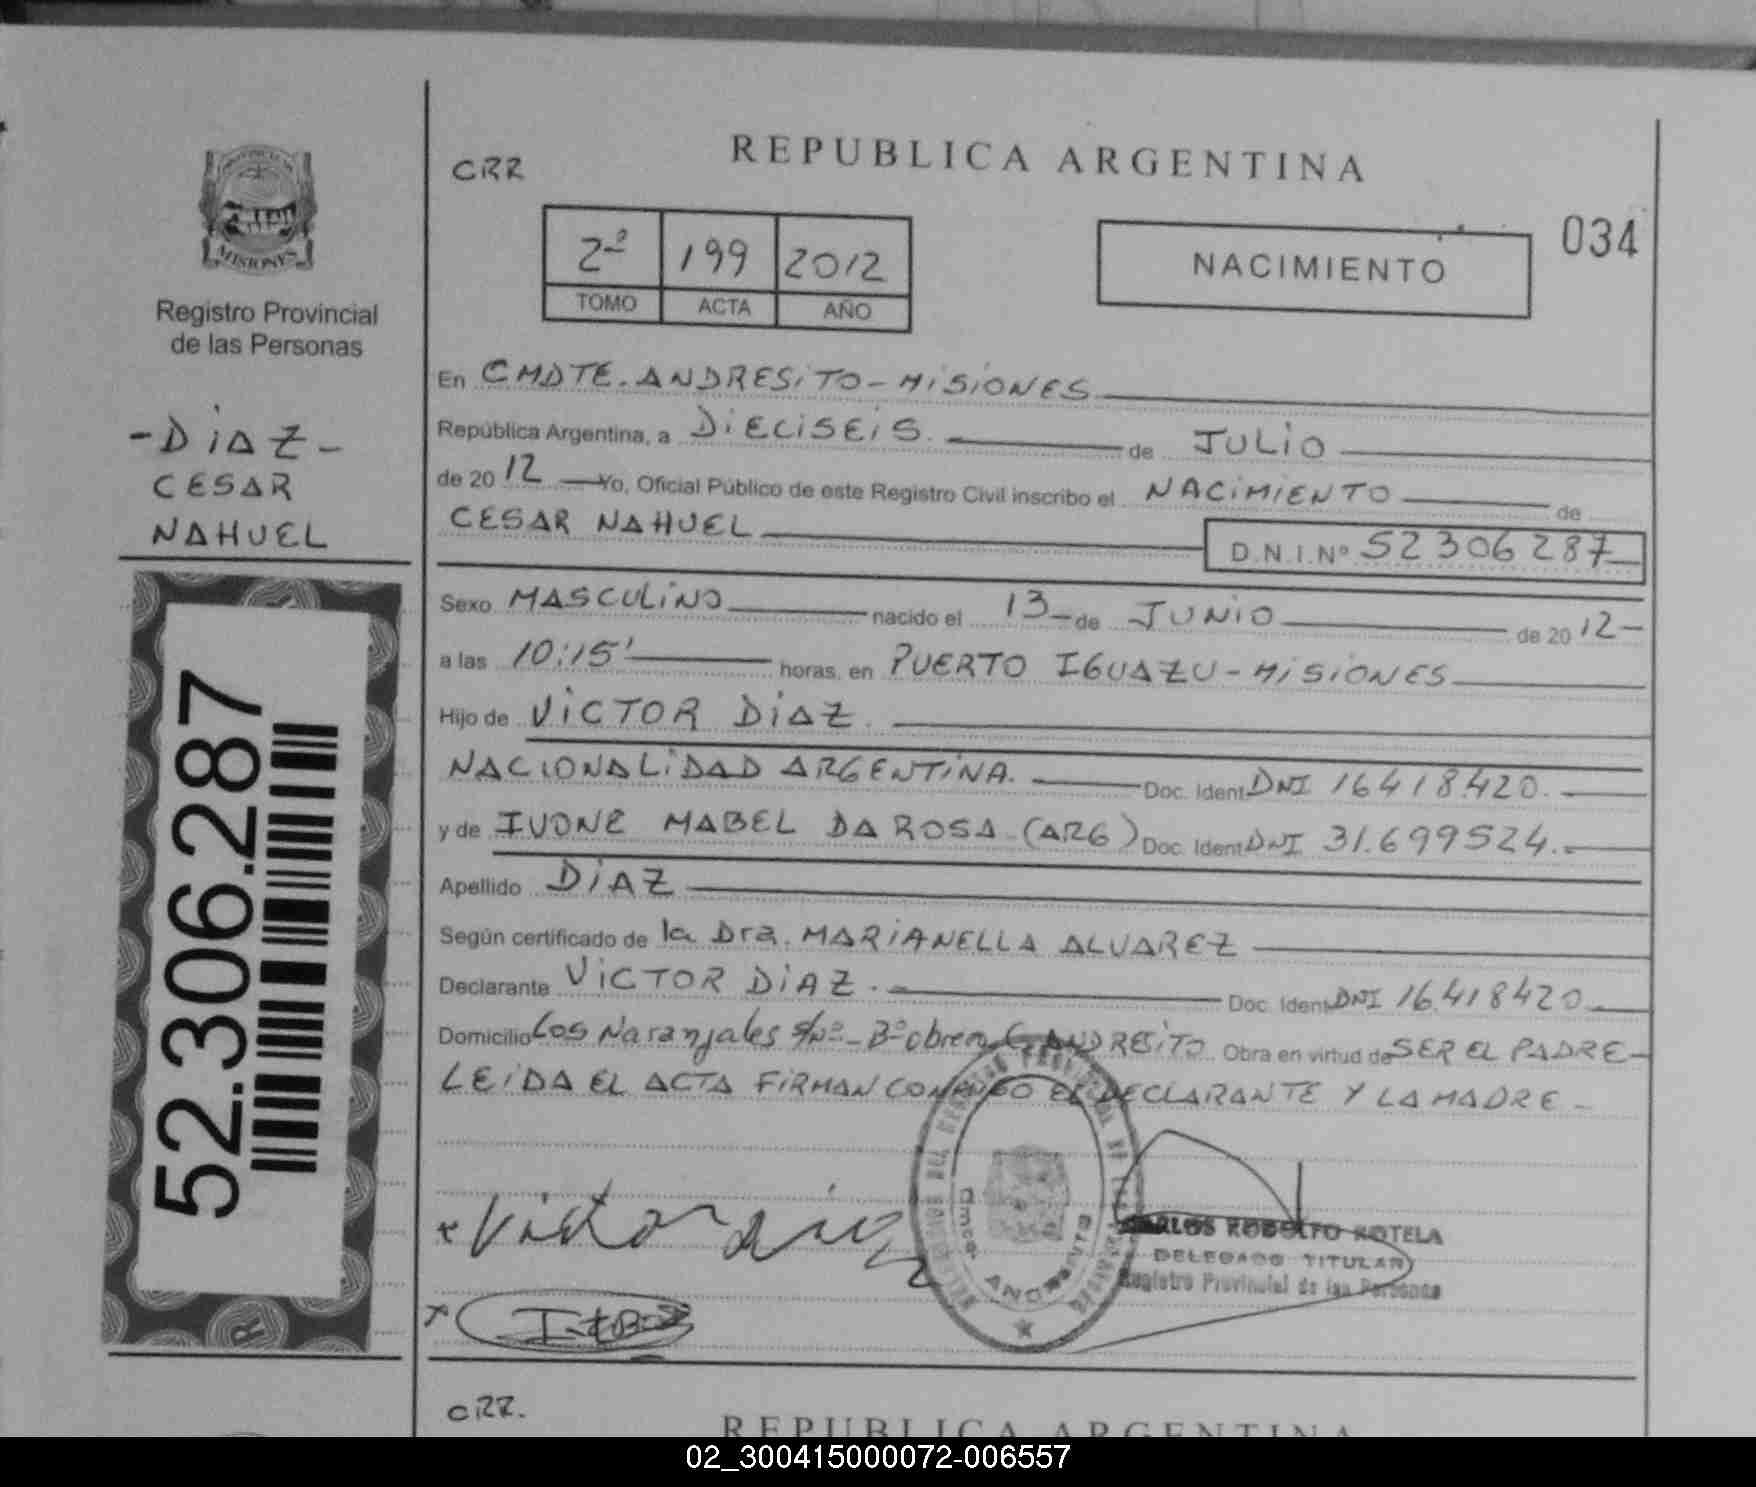 CRR
REPUBLICA ARGENTINA
034
2º 199 2012
TOMO ACTA AÑO
NACIMIENTO
MISIONES
Registro Provincial
de las Personas
-DiAZ-
CESAR
NAHUEL
52.306.287
R
En CMDTE. ANDRESiTO - MiSiONES
República Argentina, a DiECiSEiS. de JULiO
de 2012 Yo, Oficial Público de este Registro Civil inscribo el NACiMiENTO de
CESAR NAHUEL D.N.I.Nº 52306287
Sexo MASCULiNO nacido el 13 de JUNiO de 2012-
a las 10:15' horas, en PUERTO IGUAZU - MiSiONES
Hijo de ViCTOR DiAZ.
NACIONALiDAD ARGENTiNA. Doc. Ident. DNI 16418420.
y de IVONE MABEL DA ROSA (ARG) Doc. Ident. DNI 31.699524.
Apellido DiAZ
Según certificado de la Dra. MARiANELLA ALVAREZ
Declarante ViCTOR DiAZ. Doc. Ident. DNI 16.418420
Domicilio Los Naranjales S/Nº - Bº obrero C. ANDRESiTO Obra en virtud de SER EL PADRE-
LEiDA EL ACTA FiRMAN CONMiGO EL DECLARANTE Y LA MADRE -
x Victor Diaz
CARLOS RODOLFO ROTELA
DELEGADO TITULAR
Registro Provincial de las Personas
x
CRR.
REPUBLICA ARGENTINA
02_300415000072-006557